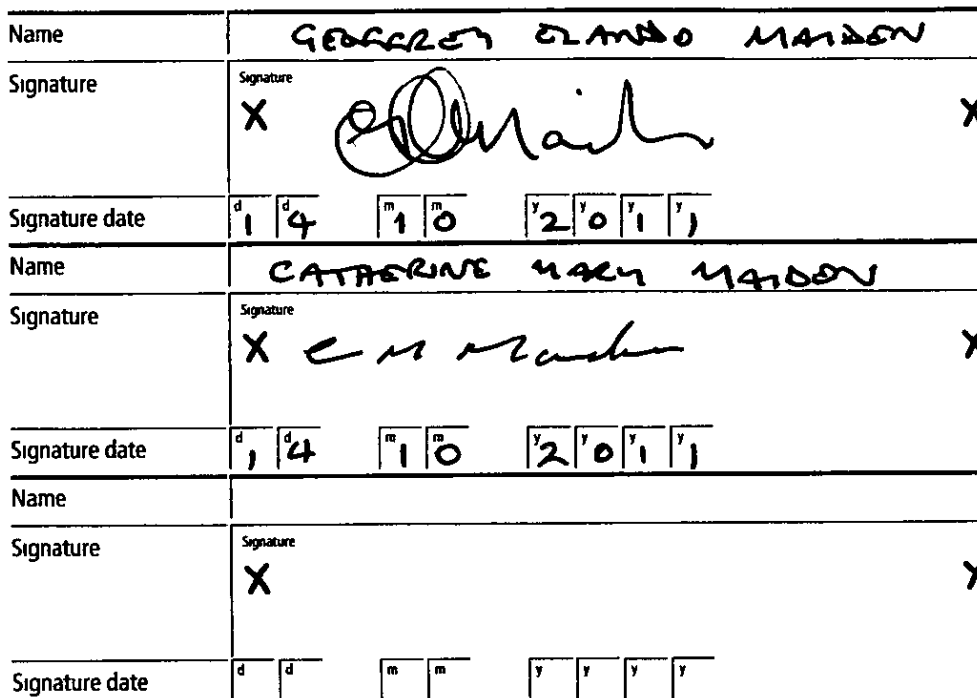 Name GEOFFREY OLANDO MAIDEN
Signature
Signature
X X
Signature date d1 d4 m1 m0 y2 y0 y1 y1
Name CATHERINE MARY MAIDEN
Signature
Signature
X C M Maiden X
Signature date d1 d4 m1 m0 y2 y0 y1 y1
Name
Signature
Signature
X X
Signature date d d m m y y y y